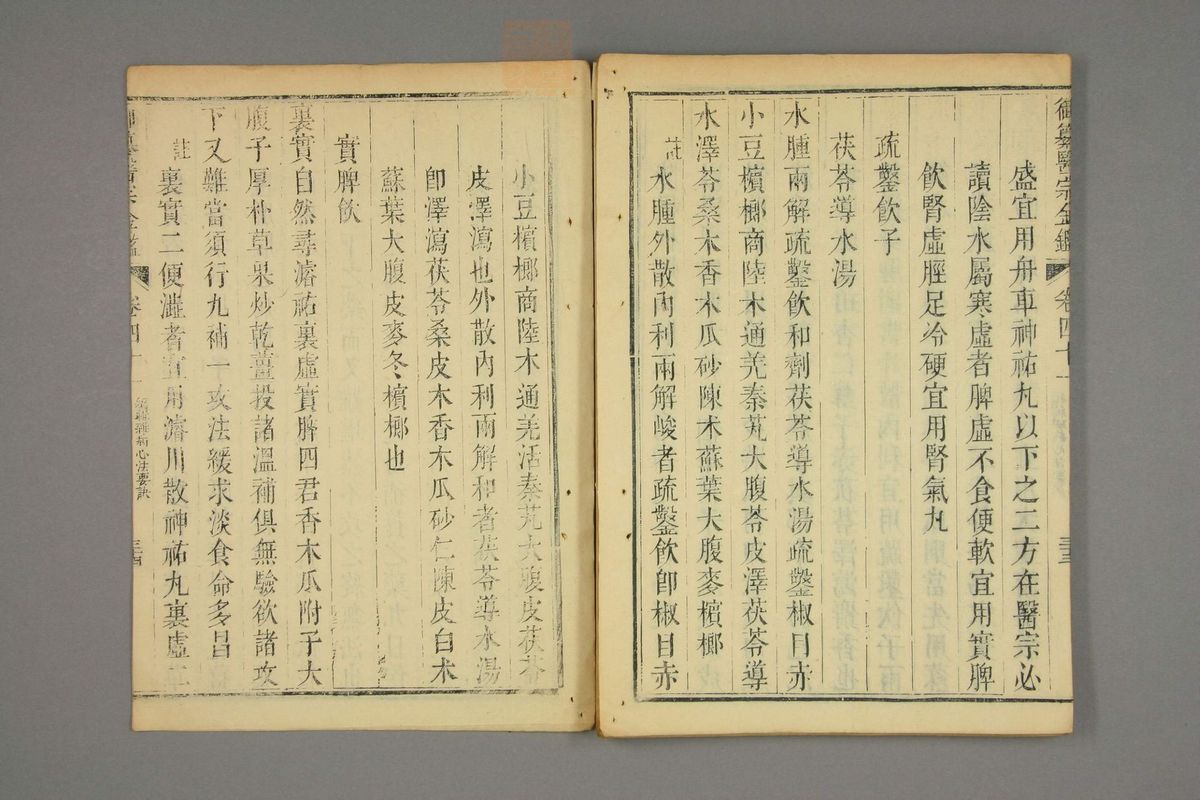 御纂醫宗金鑑 卷四十一 三三
盛宜用舟車神祐丸以下之二方在醫宗必
讀陰水屬寒虛者脾虛不食便軟宜用實脾
飲腎虛脛足冷硬宜用腎氣丸
疏鑿飲子
茯苓導水湯
水腫兩解疏鑿飲和劑茯苓導水湯疏鑿椒目赤
小豆檳榔商陸木通羌秦艽大腹苓皮澤茯苓導
水澤苓桑木香木瓜砂陳朮蘇葉大腹麥檳榔
註水腫外散內利兩解峻者疏鑿飲卽椒目赤
小豆檳榔商陸木通羌活秦艽大腹皮茯苓
皮澤瀉也外散內利兩解和者茯苓導水湯
卽澤瀉茯苓桑皮木香木瓜砂仁陳皮白朮
蘇葉大腹皮麥冬檳榔也
實脾飲
裏實自然尋濬祐裏虛實脾四君香木瓜附子大
腹子厚朴草果炒乾薑投諸溫補俱無驗欲諸攻
下又難當須行九補一攻法緩求淡食命多昌
註裏實二便澁者宜用濬川散神祐丸裏虛二
御纂醫宗金鑑 卷四十一 編輯雜病心法要訣 三四